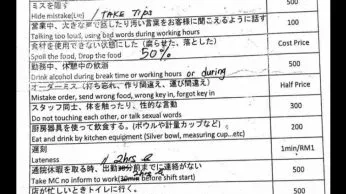 ミスを隠す
Hide mistake(Lie) / TAKE Tips 500
営業中、大きな声で話したり汚い言葉をお客様に聞こえるように話す
Talking too loud, using bad words during working hours 100
食材を使用できない状態にした（腐らせた、落とした）
Spoil the food, Drop the food 50% Cost Price
勤務中、休憩中の飲酒
Drink alcohol during break time or working hours or during 500
オーダーミス（打ち忘れ、作り間違え、運び間違え）
Mistake order, send wrong food, wrong key in, forgot key in Half Price
スタッフ同士、体を触ったり、性的な言動
Do not touching each other, or talk sexual words 300
厨房器具を使って飲食する。（ボウルや計量カップなど）
Eat and drink by kitchen equipment (Silver bowl, measuring cup...etc) 200
遅刻
Lateness 1min/RM1
当欠休暇を取る時、出勤30分前までに連絡がない 2hrs
Take MC no inform to work(30min before shift start) 2hrs 500
店が忙しいときトイレに行く。